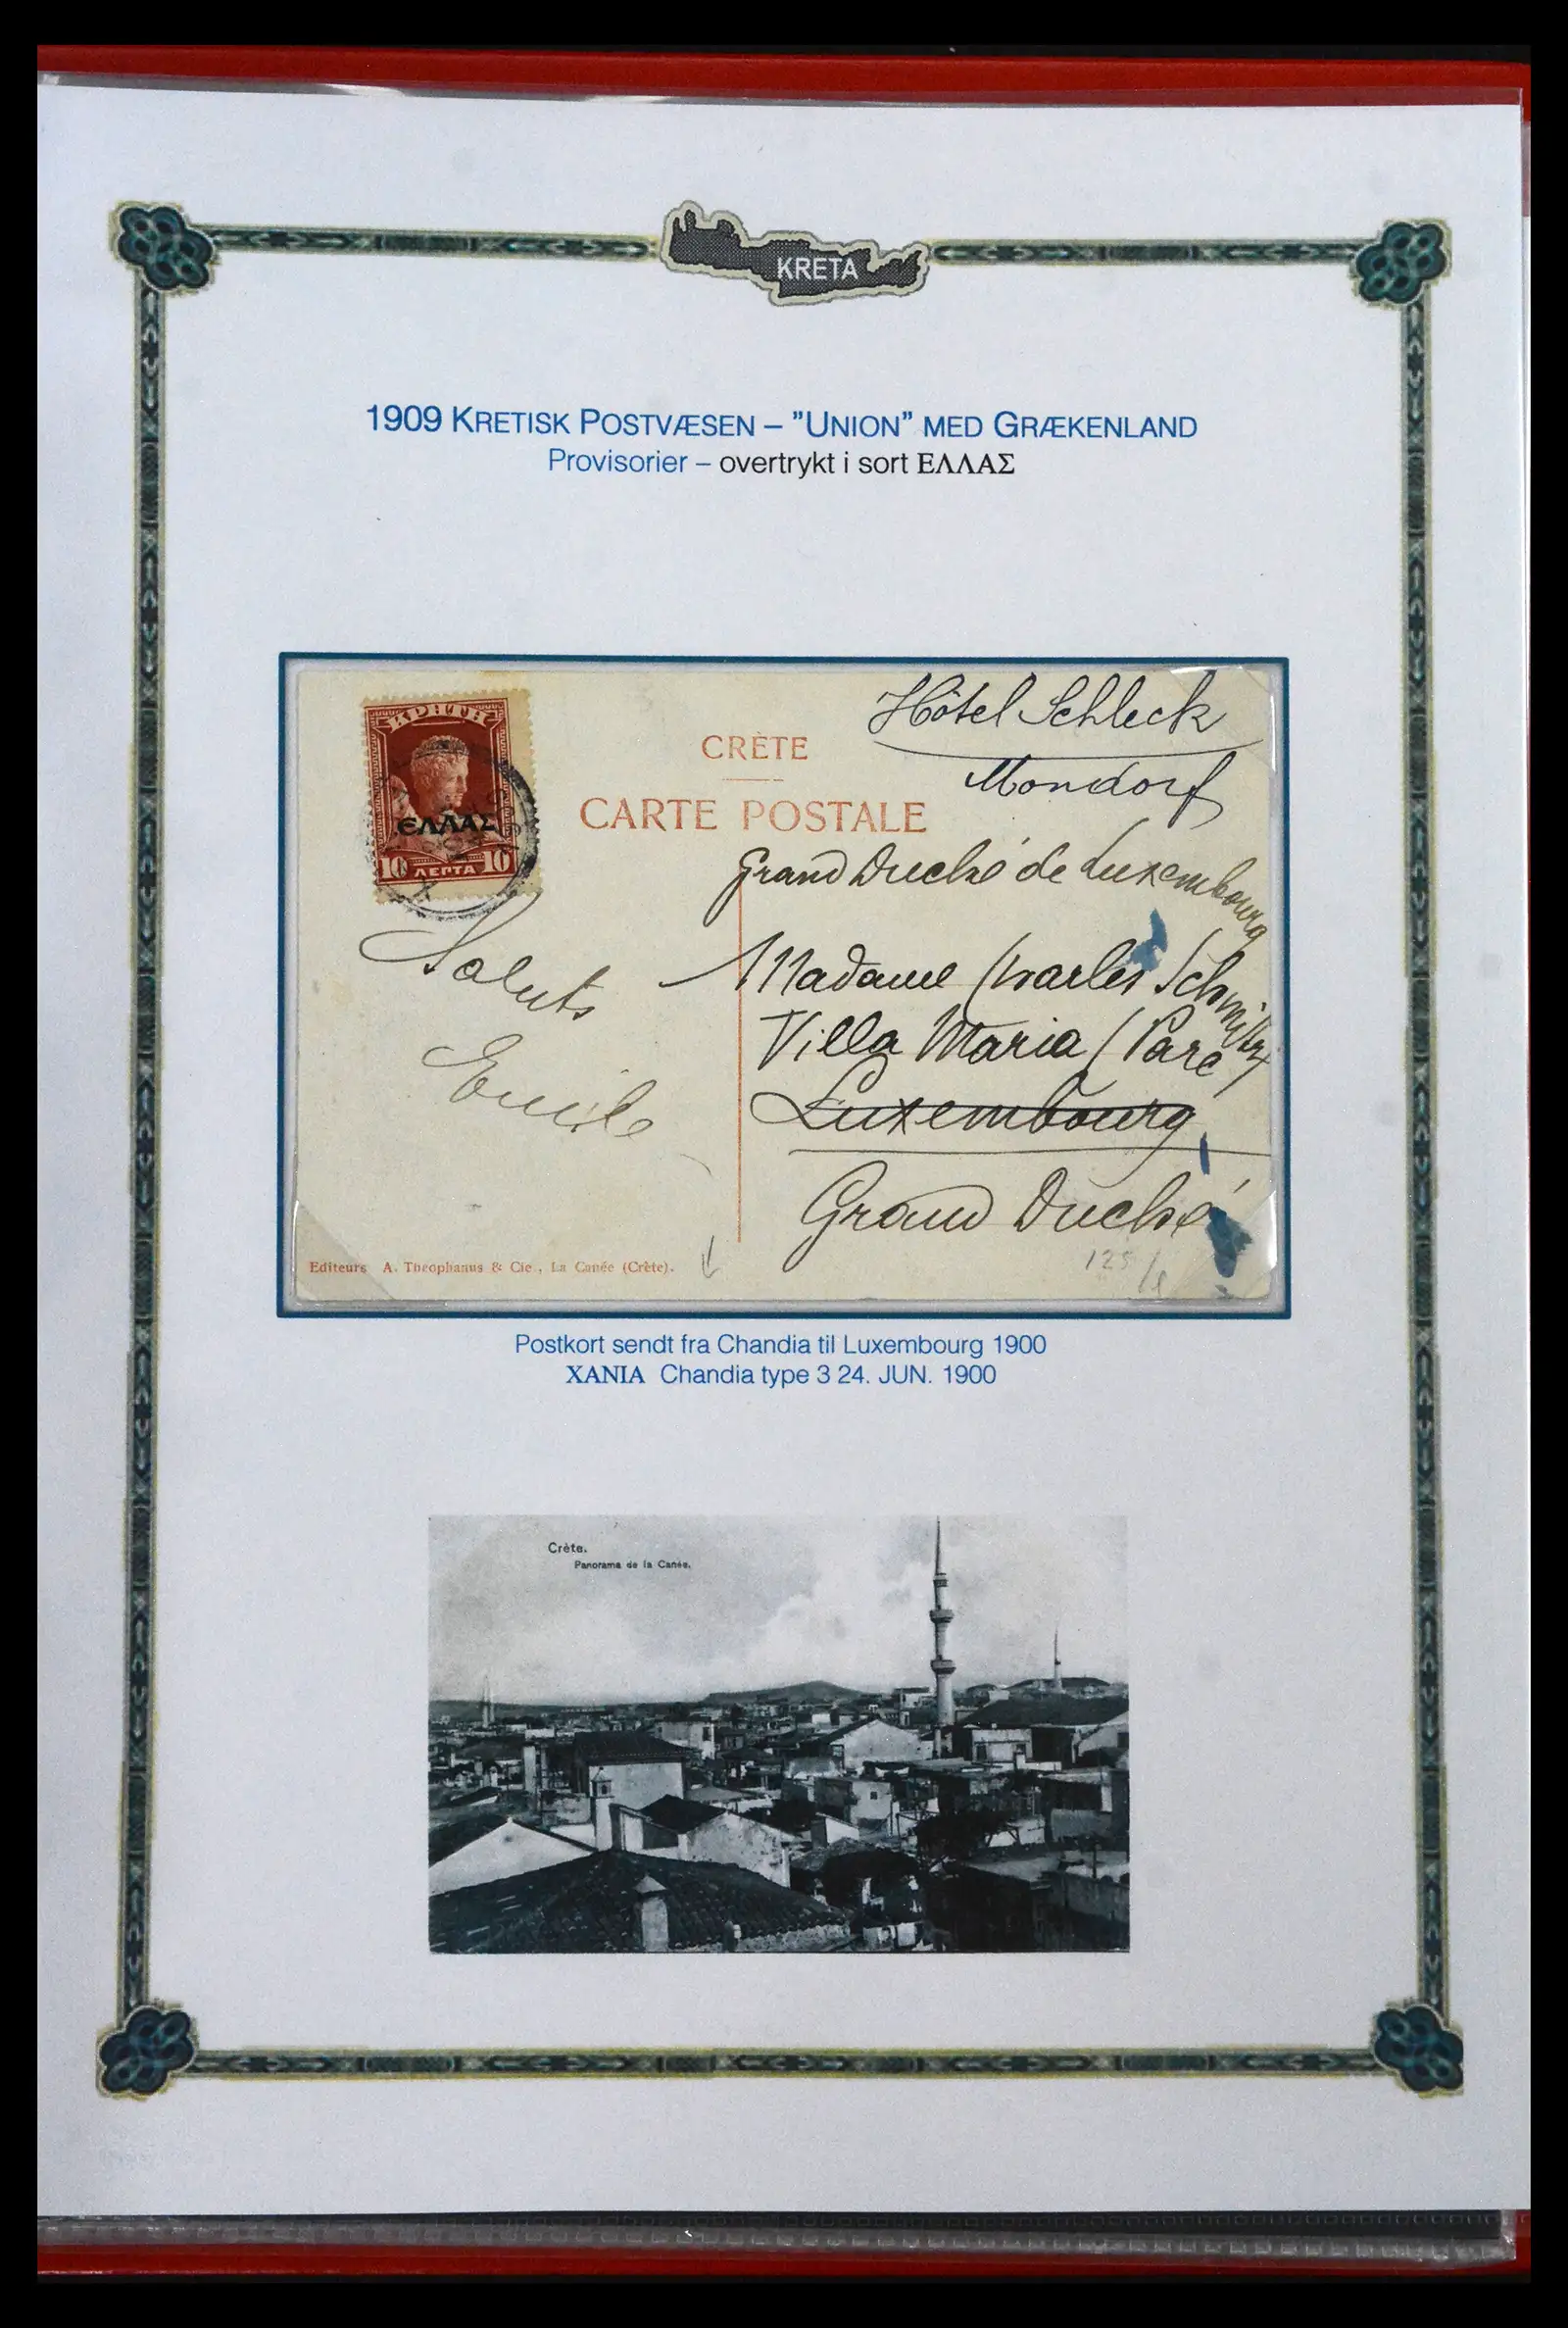 KRETA
1909 KRETISK POSTVÆSEN – ”UNION” MED GRÆKENLAND
Provisorier – overtrykt i sort ΕΛΛΑΣ
ΚΡΗΤΗ
ΕΛΛΑΣ
10 ΛΕΠΤΑ 10
Hôtel Schleck
Mondorf
CRÈTE
CARTE POSTALE
Grand Duché de Luxembourg
Saluts
Emile
Madame Charles Schmitz
Villa Maria / Parc
Luxembourg
Grand Duché
125
Editeurs A. Theophanus & Cie., La Canée (Crète).
Postkort sendt fra Chandia til Luxembourg 1900
ΧΑΝΙΑ Chandia type 3 24. JUN. 1900
Crète.
Panorama de la Canée.